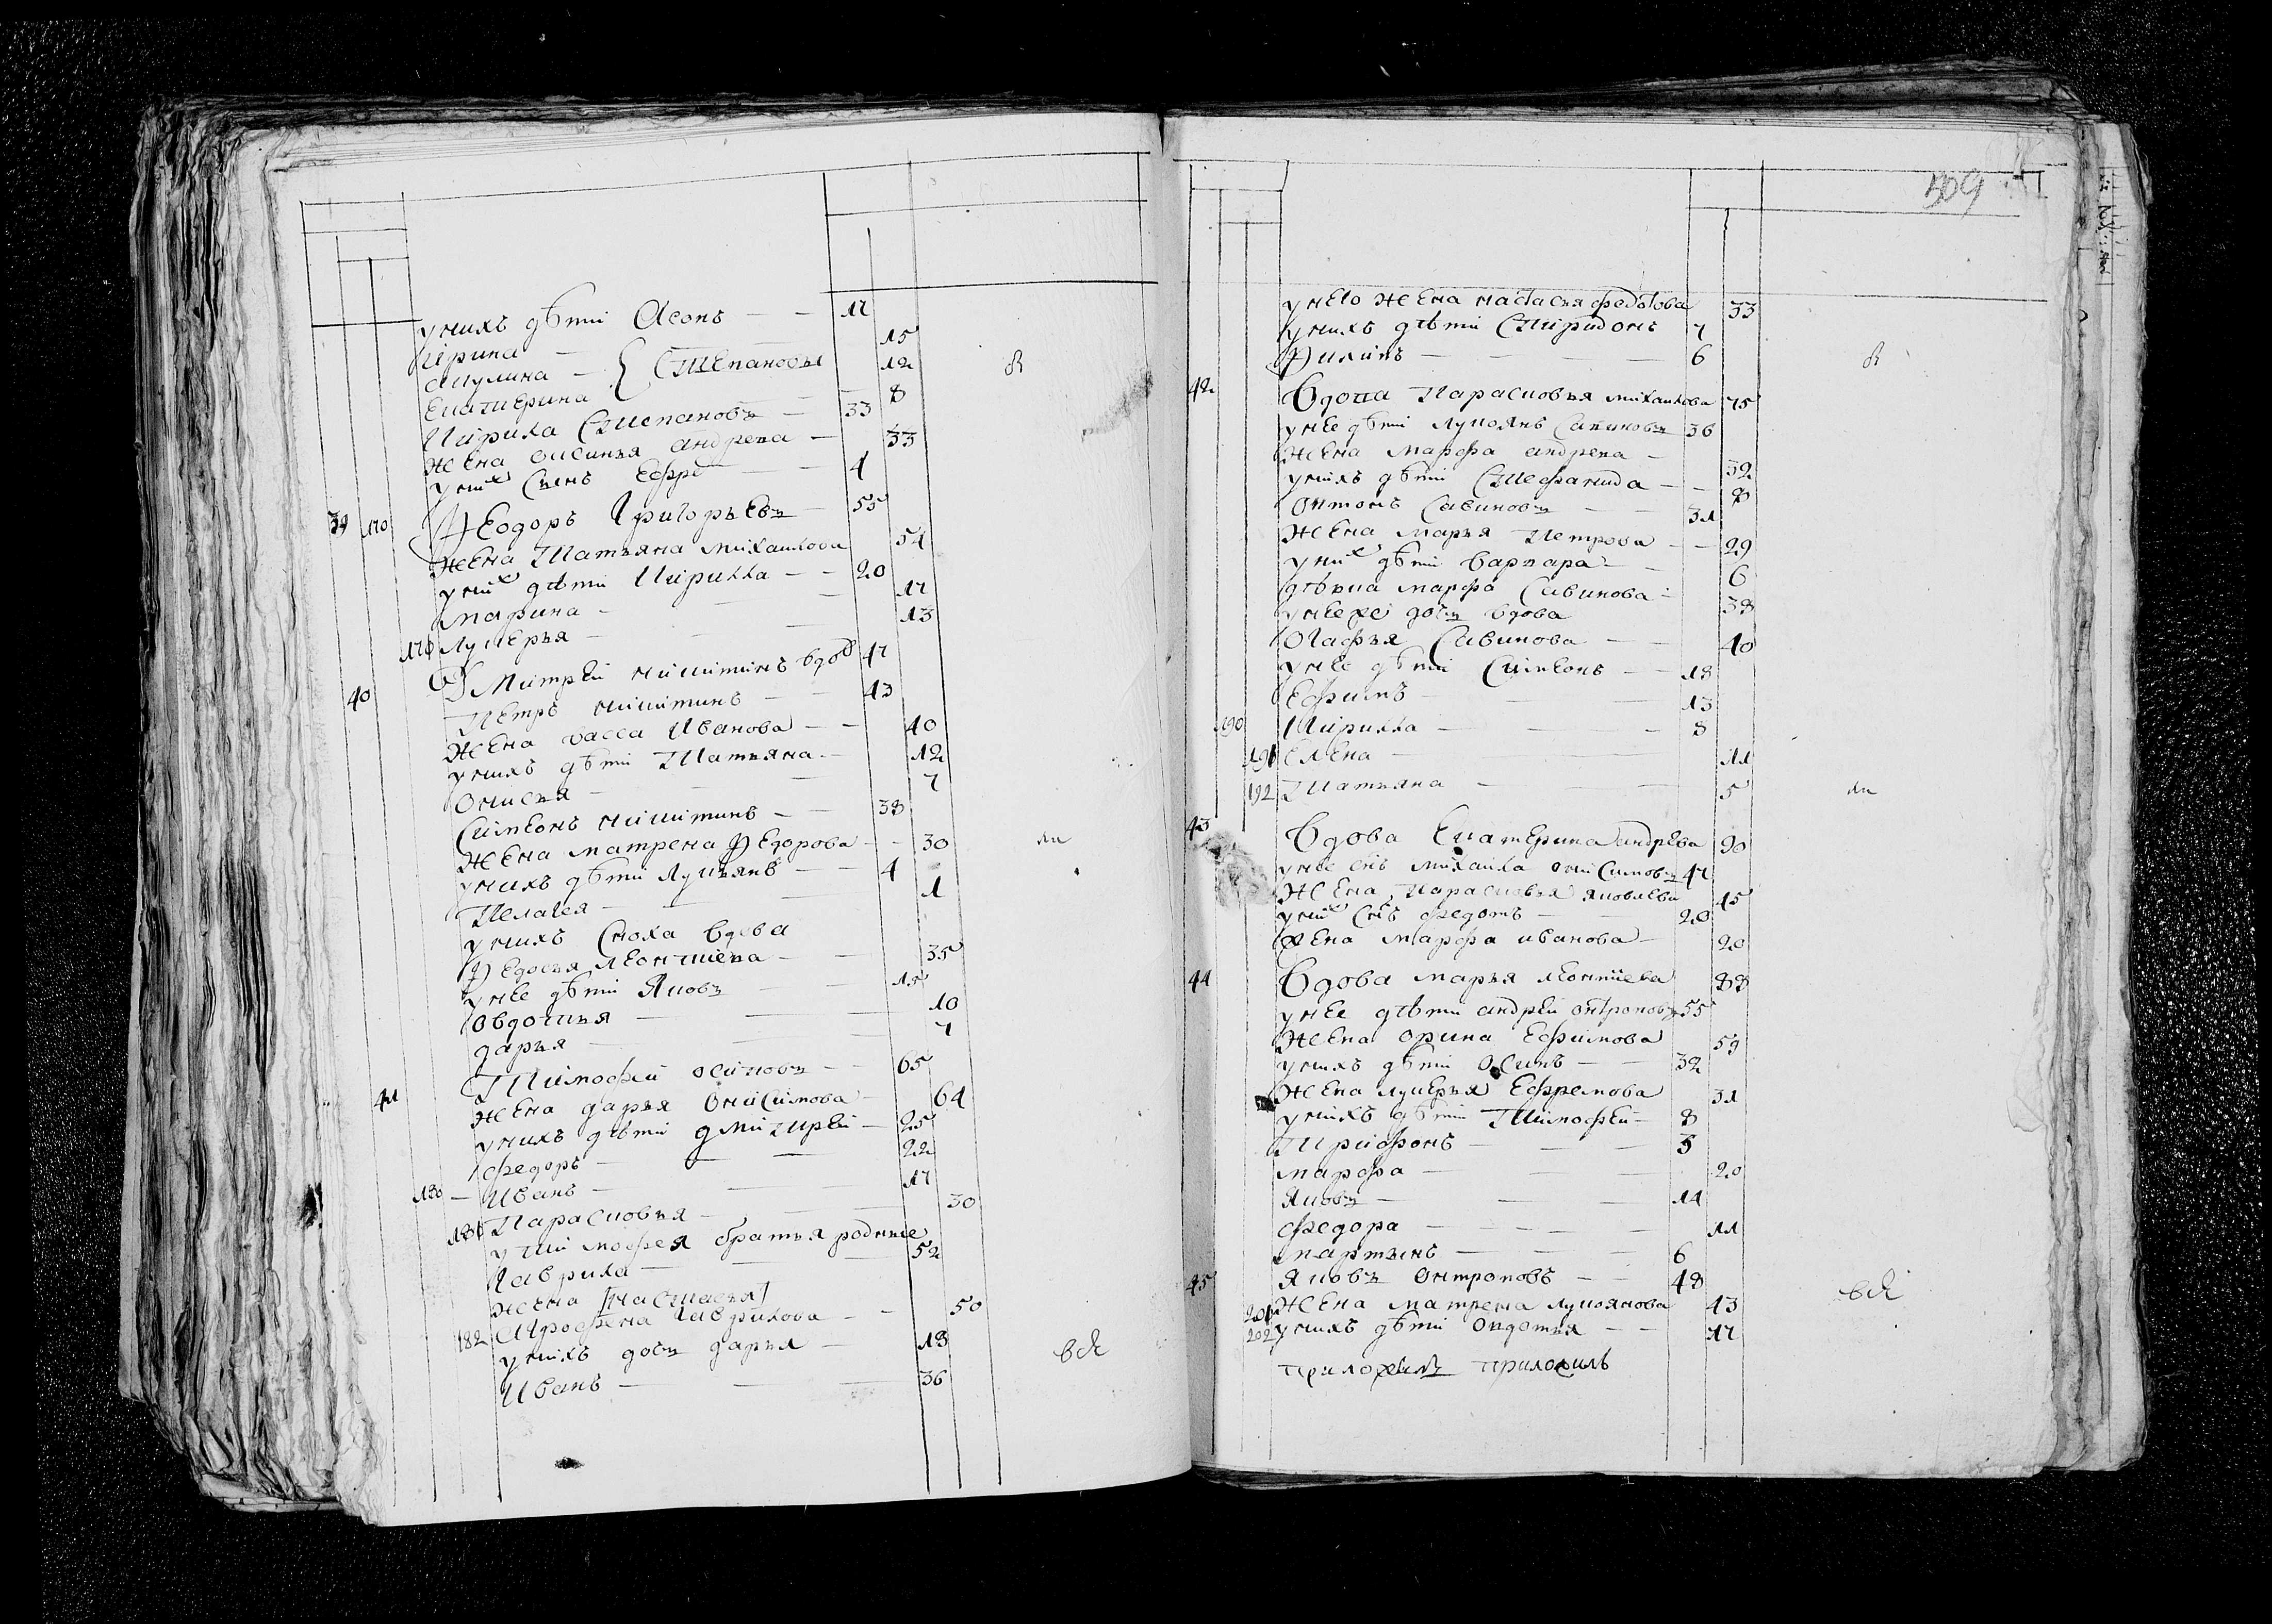 у нихъ дѣти Асопъ — — 17
Ирина — 15
Акулина — } Степановы 12
Екатерина — 8
Кирила Степановъ — 33
жена Оксинья Андрева — 33
у них сынъ Ефре — 4
39 170 Ѳеодоръ Григорьевъ — 55
жена Татьяна Михаилова 54
у них дѣти Кирилла — — 20
Марина — — — 17
170 Лукерья — — — 13
40 Дмитрей Никитинъ вдов 47
Петръ Никитинъ — — 43
жена Васса Иванова — — 40
у нихъ дѣти Татьяна — 12
Онисья — — 7
Симеонъ Никитинъ — — 38
жена Матрена Ѳедорова — — 30
у нихъ дѣти Лукьянъ — — 4
Пелагея — — 1
у нихъ сноха вдова
Ѳедосья Леонтиева — — 35
у нее дѣти Яковъ — — 15
Овдотья — — — 10
Дарья — — — 7
41 Тимофеи Осиповъ — — 65
жена Дарья Онисимова — 64
у нихъ дѣти Дмитрей — 25
Федоръ — — — 22
180 — Иванъ — — — 17
181 Парасковья — — 30
у Тимофея братья родные
Гаврила — — — 52
жена [Настасья]
182 Афросена Гаврилова — 50
у нихъ дочь Дарья — 18
Иванъ — — — 36
л
ли
вед
509
у него жена Настасья Федотова 33
у нихъ дѣти Спиридонъ 7
Филипъ — — — 6
42 Вдова Парасковья Михаилова 75
у нее дѣти Лукоянъ Савиновъ 36
жена Марфа Андрева — 32
у нихъ дѣти Стефанида — — 8
Онтонъ Савиновъ — — 31
жена Марья Петрова — — 29
у них дѣти Варвара — — 6
дѣвка Марфа Савинова — 38
у нее же дочь вдова
Огафья Савинова — — 40
у нее дѣти Симеонъ — — 18
Ефимъ — — — 13
190 Кирилла — — — 8
191 Елена — — — 11
192 Татьяна — — — 5
43 Вдова Екатерина Андрева 90
у нее снъ Михаила Онисимовъ 47
жена Парасковья Яковлева 45
у них снъ Федотъ — — 20
жена Марфа Иванова — 20
44 Вдова Марья Леонтиева 88
у нее дѣти Андреи Онтроповъ 55
жена Орина Ефимова 59
у нихъ дѣти Осипъ — — 32
жена Лукерья Ефремова 31
у нихъ дѣти Тимофеи — 8
Трифонъ — — — 3
Марфа — — — 20
Яковъ — — — 14
Федора — — — 11
Мартынъ — — 6
45 Яковъ Онтроповъ — — 48
201 жена Матрена Лукоянова 43
202 у нихъ дѣти Овдотья — — 17
приложилъ
л
ли
вед